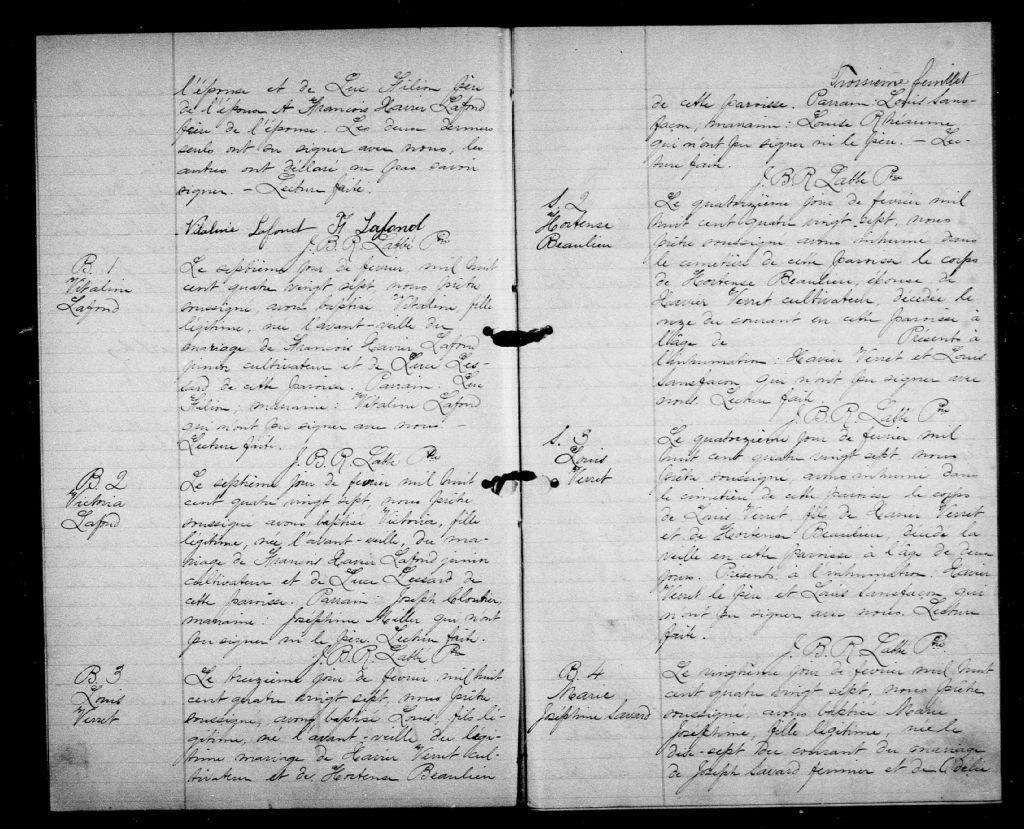 l'épouse et de Luc Filion père
de l'épouse et François Xavier Lafond
père de l'épouse. Les deux derniers
seuls ont su signer avec nous, les
autres ont déclaré ne pas savoir
signer. – Lecture faite.
Vitaline Lafond FX Lafond
J. B. R. Labbé Ptre
B. 1
Vitaline
Lafond
Le septième jour de février, mil huit
cent quatre vingt sept nous prêtre
soussigné, avons baptisé Vitaline, fille
légitime, née l'avant-veille du
mariage de François Xavier Lafond
junior cultivateur et de Luce Les-
sard de cette paroisse. Parrain: Luc
Filion; marraine: Vitaline Lafond
qui n'ont pu signer avec nous –
Lecture faite.
J. B. R. Labbé Ptre
B. 2
Victoria
Lafond
Le septième jour de février mil huit
cent quatre vingt sept, nous prêtre
soussigné avons baptisé Victoria, fille
légitime, née l'avant-veille, du ma-
riage de François Xavier Lafond junior
cultivateur et de Luce Lessard de
cette paroisse. Parrain: Joseph Cloutier,
marraine: Josephine Miller qui n'ont
pu signer ni le père. Lecture faite.
J. B. R. Labbé Ptre
B. 3
Louis
Verret
Le treizième jour de février mil huit
cent quatre vingt sept, nous prêtre
soussigné, avons baptisé Louis, fils lé-
gitime, né l'avant-veille du légi-
time mariage de Xavier Verret cul-
tivateur et de Hortense Beaulieu
Troisième feuillet
de cette paroisse. Parrain: Louis Sans-
façon, marraine: Louise Rhéaume
qui n'ont pu signer ni le père. – Lec-
ture faite.
J. B. R. Labbé Ptre
S. 2
Hortense
Beaulieu
Le quatorzième jour de février mil
huit cent quatre vingt sept, nous
prêtre soussigné avons inhumé dans
le cimetière de cette paroisse le corps
de Hortense Beaulieu, épouse de
Xavier Verret cultivateur, décédée le
onze du courant en cette paroisse à
l'âge de Présents à
l'inhumation: Xavier Verret et Louis
Sansfaçon qui n'ont pu signer avec
nous. Lecture faite.
J. B. R. Labbé Ptre
S. 3
Louis
Verret
Le quatorzième jour de février mil
huit cent quatre vingt sept nous
prêtre soussigné, avons inhumé dans
le cimetière de cette paroisse le corps
de Louis Verret fils de Xavier Verret
et de Hortense Beaulieu, décédé la
veille en cette paroisse à l'âge de deux
jours. Présents à l'inhumation: Xavier
Verret le père et Louis Sansfaçon qui
n'ont pu signer avec nous. Lecture
faite.
J. B. R. Labbé Ptre
B. 4
Marie
Joséphine Savard
Le vingtième jour de février mil huit
cent quatre vingt sept, nous prêtre
soussigné, avons baptisé Marie
Josephine, fille légitime, née le
dix-sept du courant du mariage
de Joseph Savard fermier et de